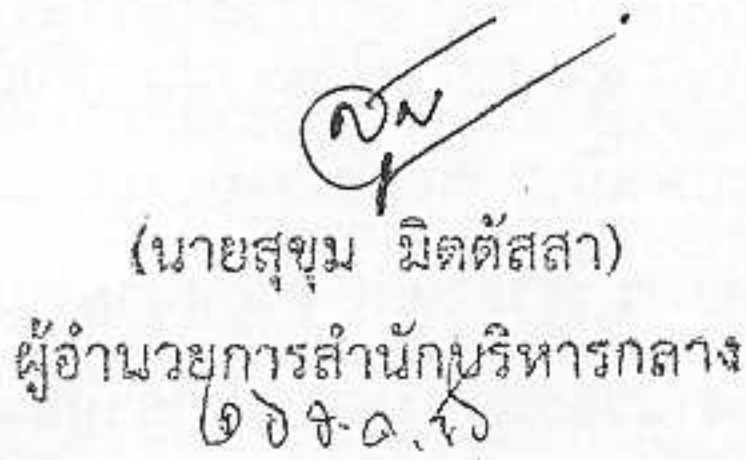 (นายสุขุม มิตตัสสา)
ผู้อำนวยการสำนักบริหารกลาง